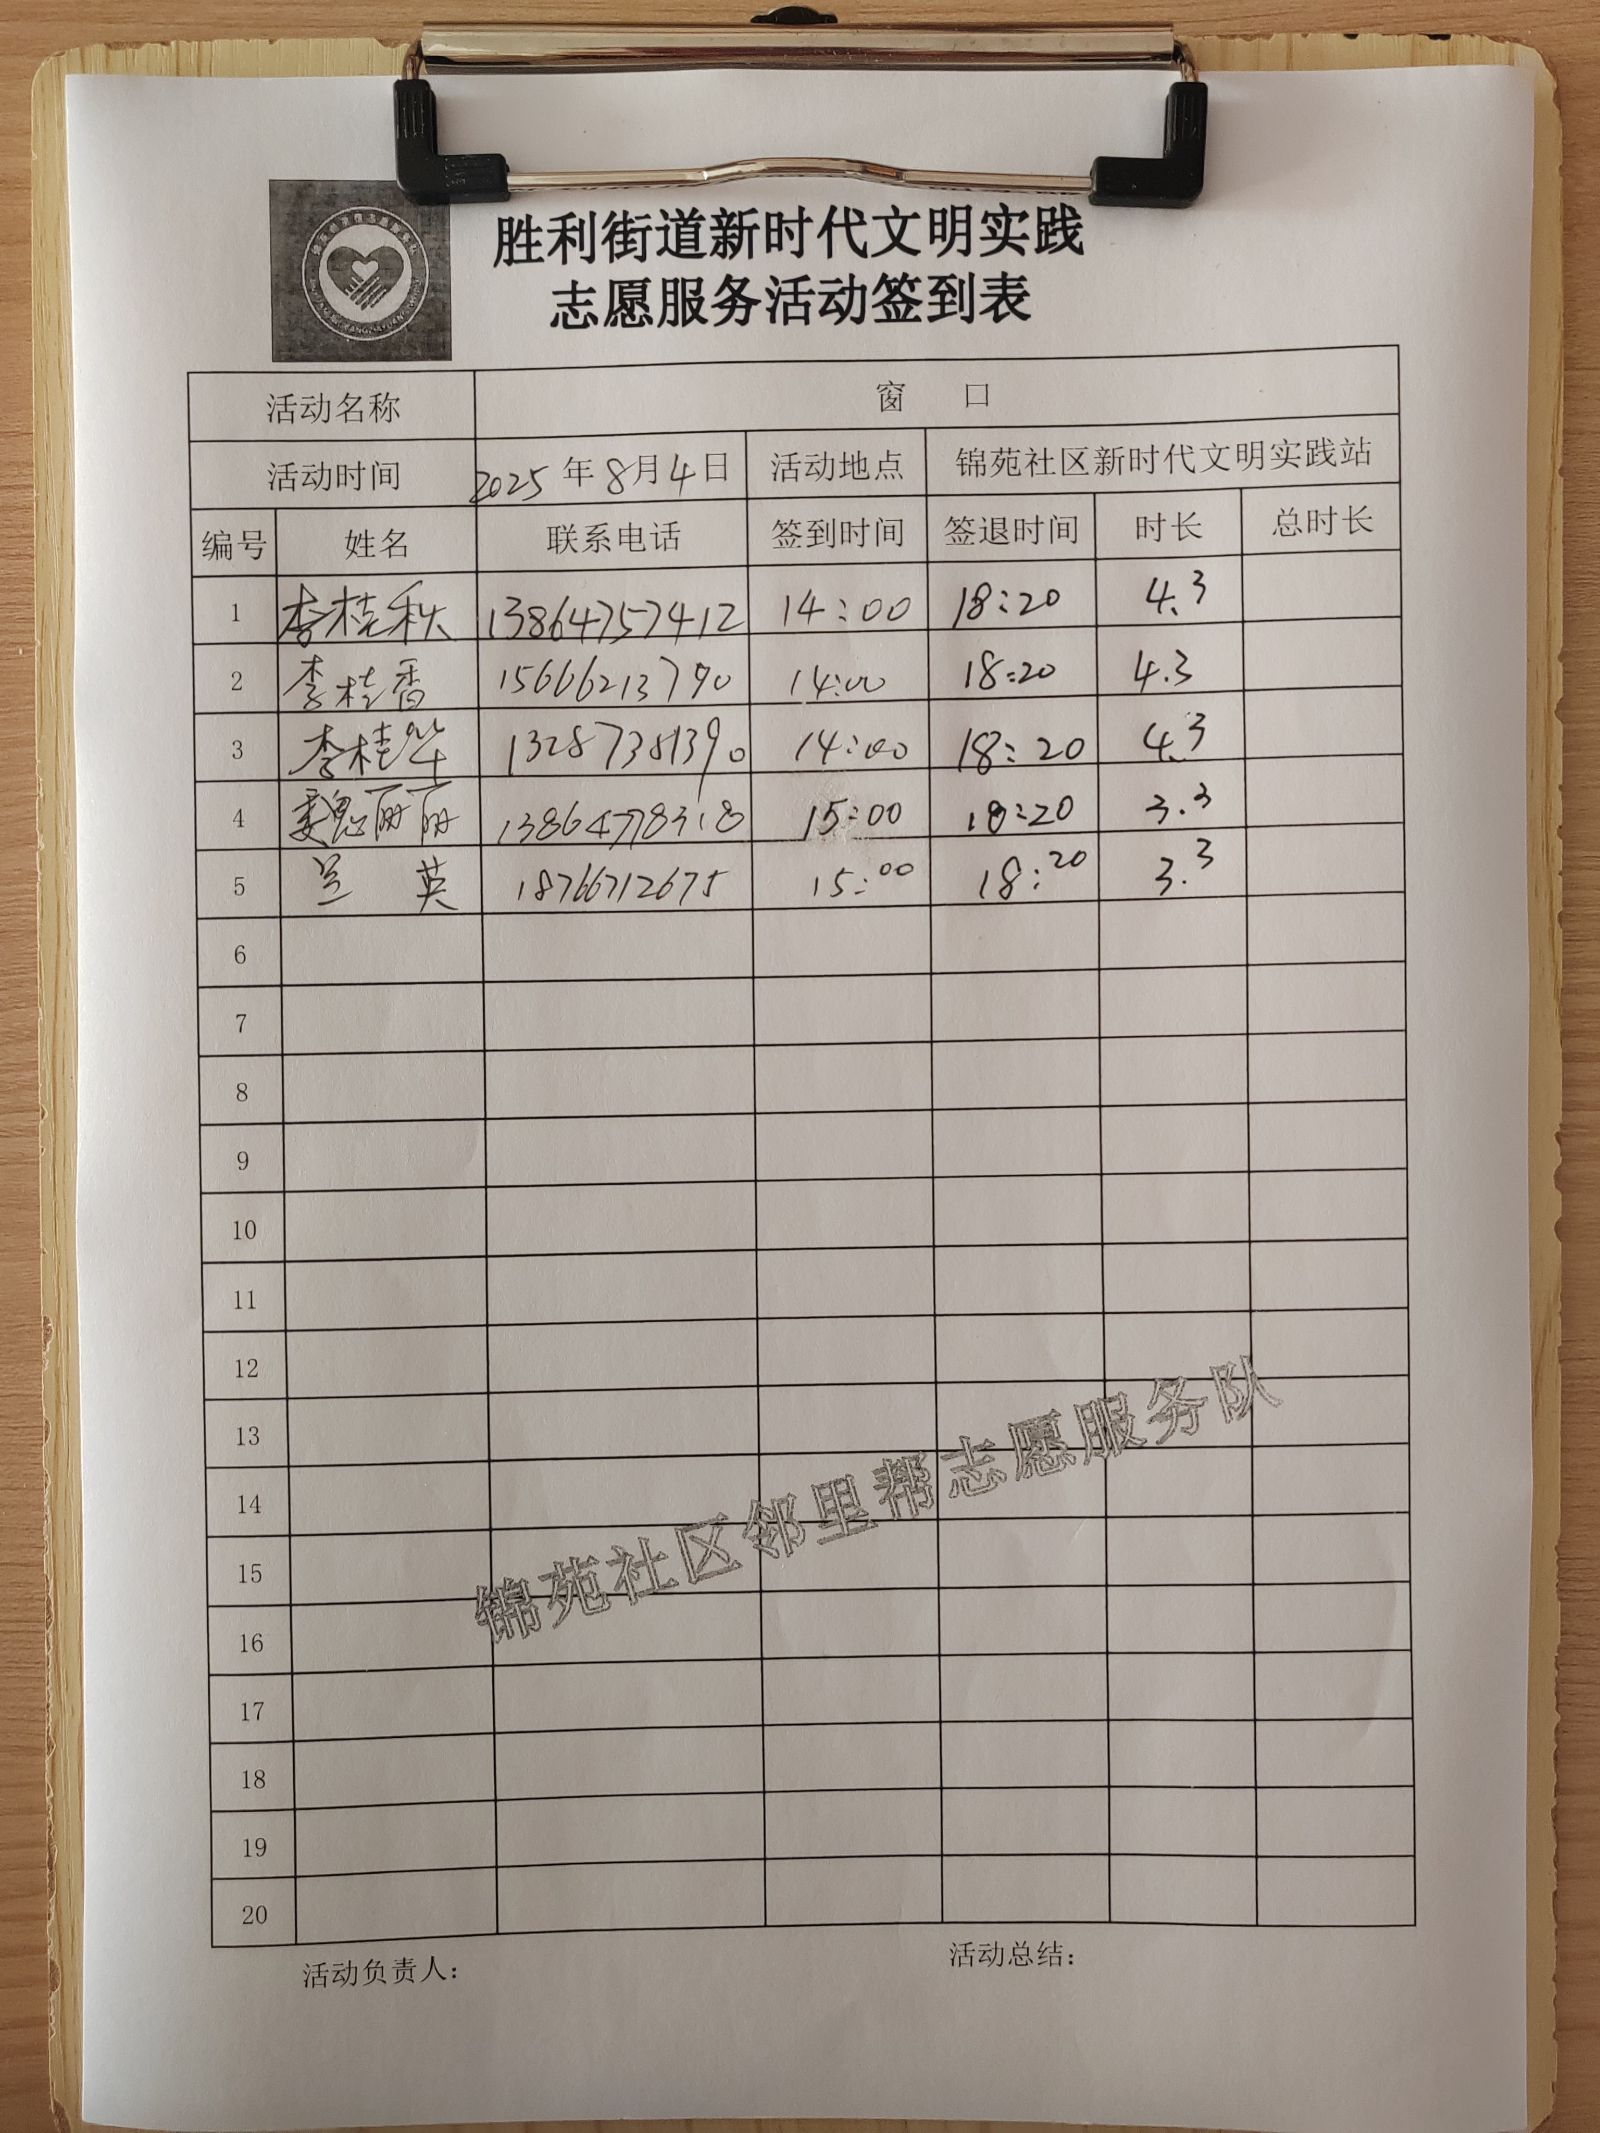 胜利街道新时代文明实践
志愿服务活动签到表
活动名称 窗 口
活动时间 2025年8月4日 活动地点 锦苑社区新时代文明实践站
编号 姓名 联系电话 签到时间 签退时间 时长 总时长
1 李桂秋 13864757412 14:00 18:20 4.3
2 李桂香 15666213790 14:00 18:20 4.3
3 李桂华 13287381390 14:00 18:20 4.3
4 魏丽丽 13864778318 15:00 18:20 3.3
5 兰 英 18766712675 15:00 18:20 3.3
6
7
8
9
10
11
12
13
14
15
16
17
18
19
20
锦苑社区邻里帮志愿服务队
活动负责人: 活动总结: